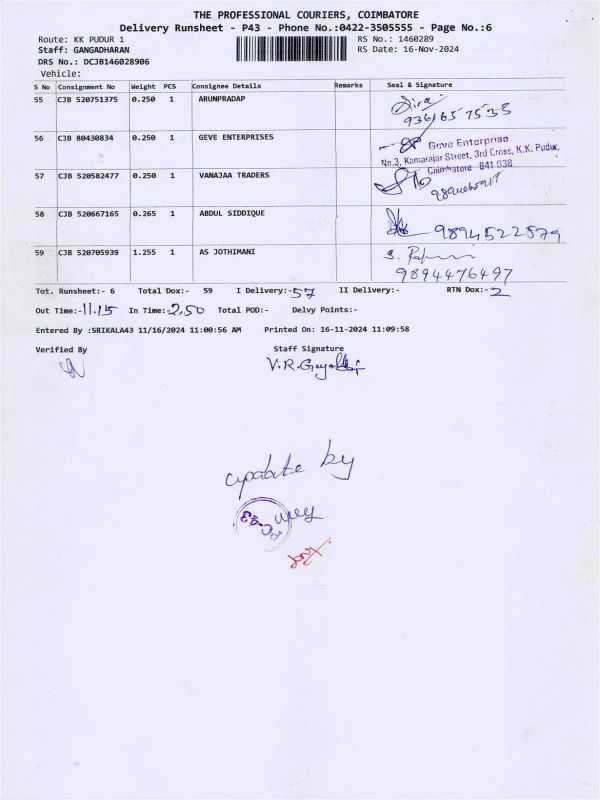 THE PROFESSIONAL COURIERS, COIMBATORE
Delivery Runsheet - P43 - Phone No.:0422-3505555 - Page No.:6
Route: KK PUDUR 1 RS No.: 1460289
Staff: GANGADHARAN RS Date: 16-Nov-2024
DRS No.: DCJB146028906
Vehicle:
S No Consignment No Weight PCS Consignee Details Remarks Seal & Signature
55 CJB 520751375 0.250 1 ARUNPRADAP
56 CJB 80430834 0.250 1 GEVE ENTERPRISES Geve Enterprise
No.3, Kamarajar Street, 3rd Cross, K.K. Pudur,
Coimbatore - 641 038
57 CJB 520582477 0.250 1 VANAJAA TRADERS
58 CJB 520667165 0.265 1 ABDUL SIDDIQUE 9894522879
59 CJB 520705939 1.255 1 AS JOTHIMANI
9894476497
Tot. Runsheet:- 6 Total Dox:- 59 I Delivery:- 57 II Delivery:- RTN Dox:- 2
Out Time:- 11.15 In Time:- 2.50 Total POD:- Delvy Points:-
Entered By :SRIKALA43 11/16/2024 11:00:56 AM Printed On: 16-11-2024 11:09:58
Verified By Staff Signature
update by
PC-43